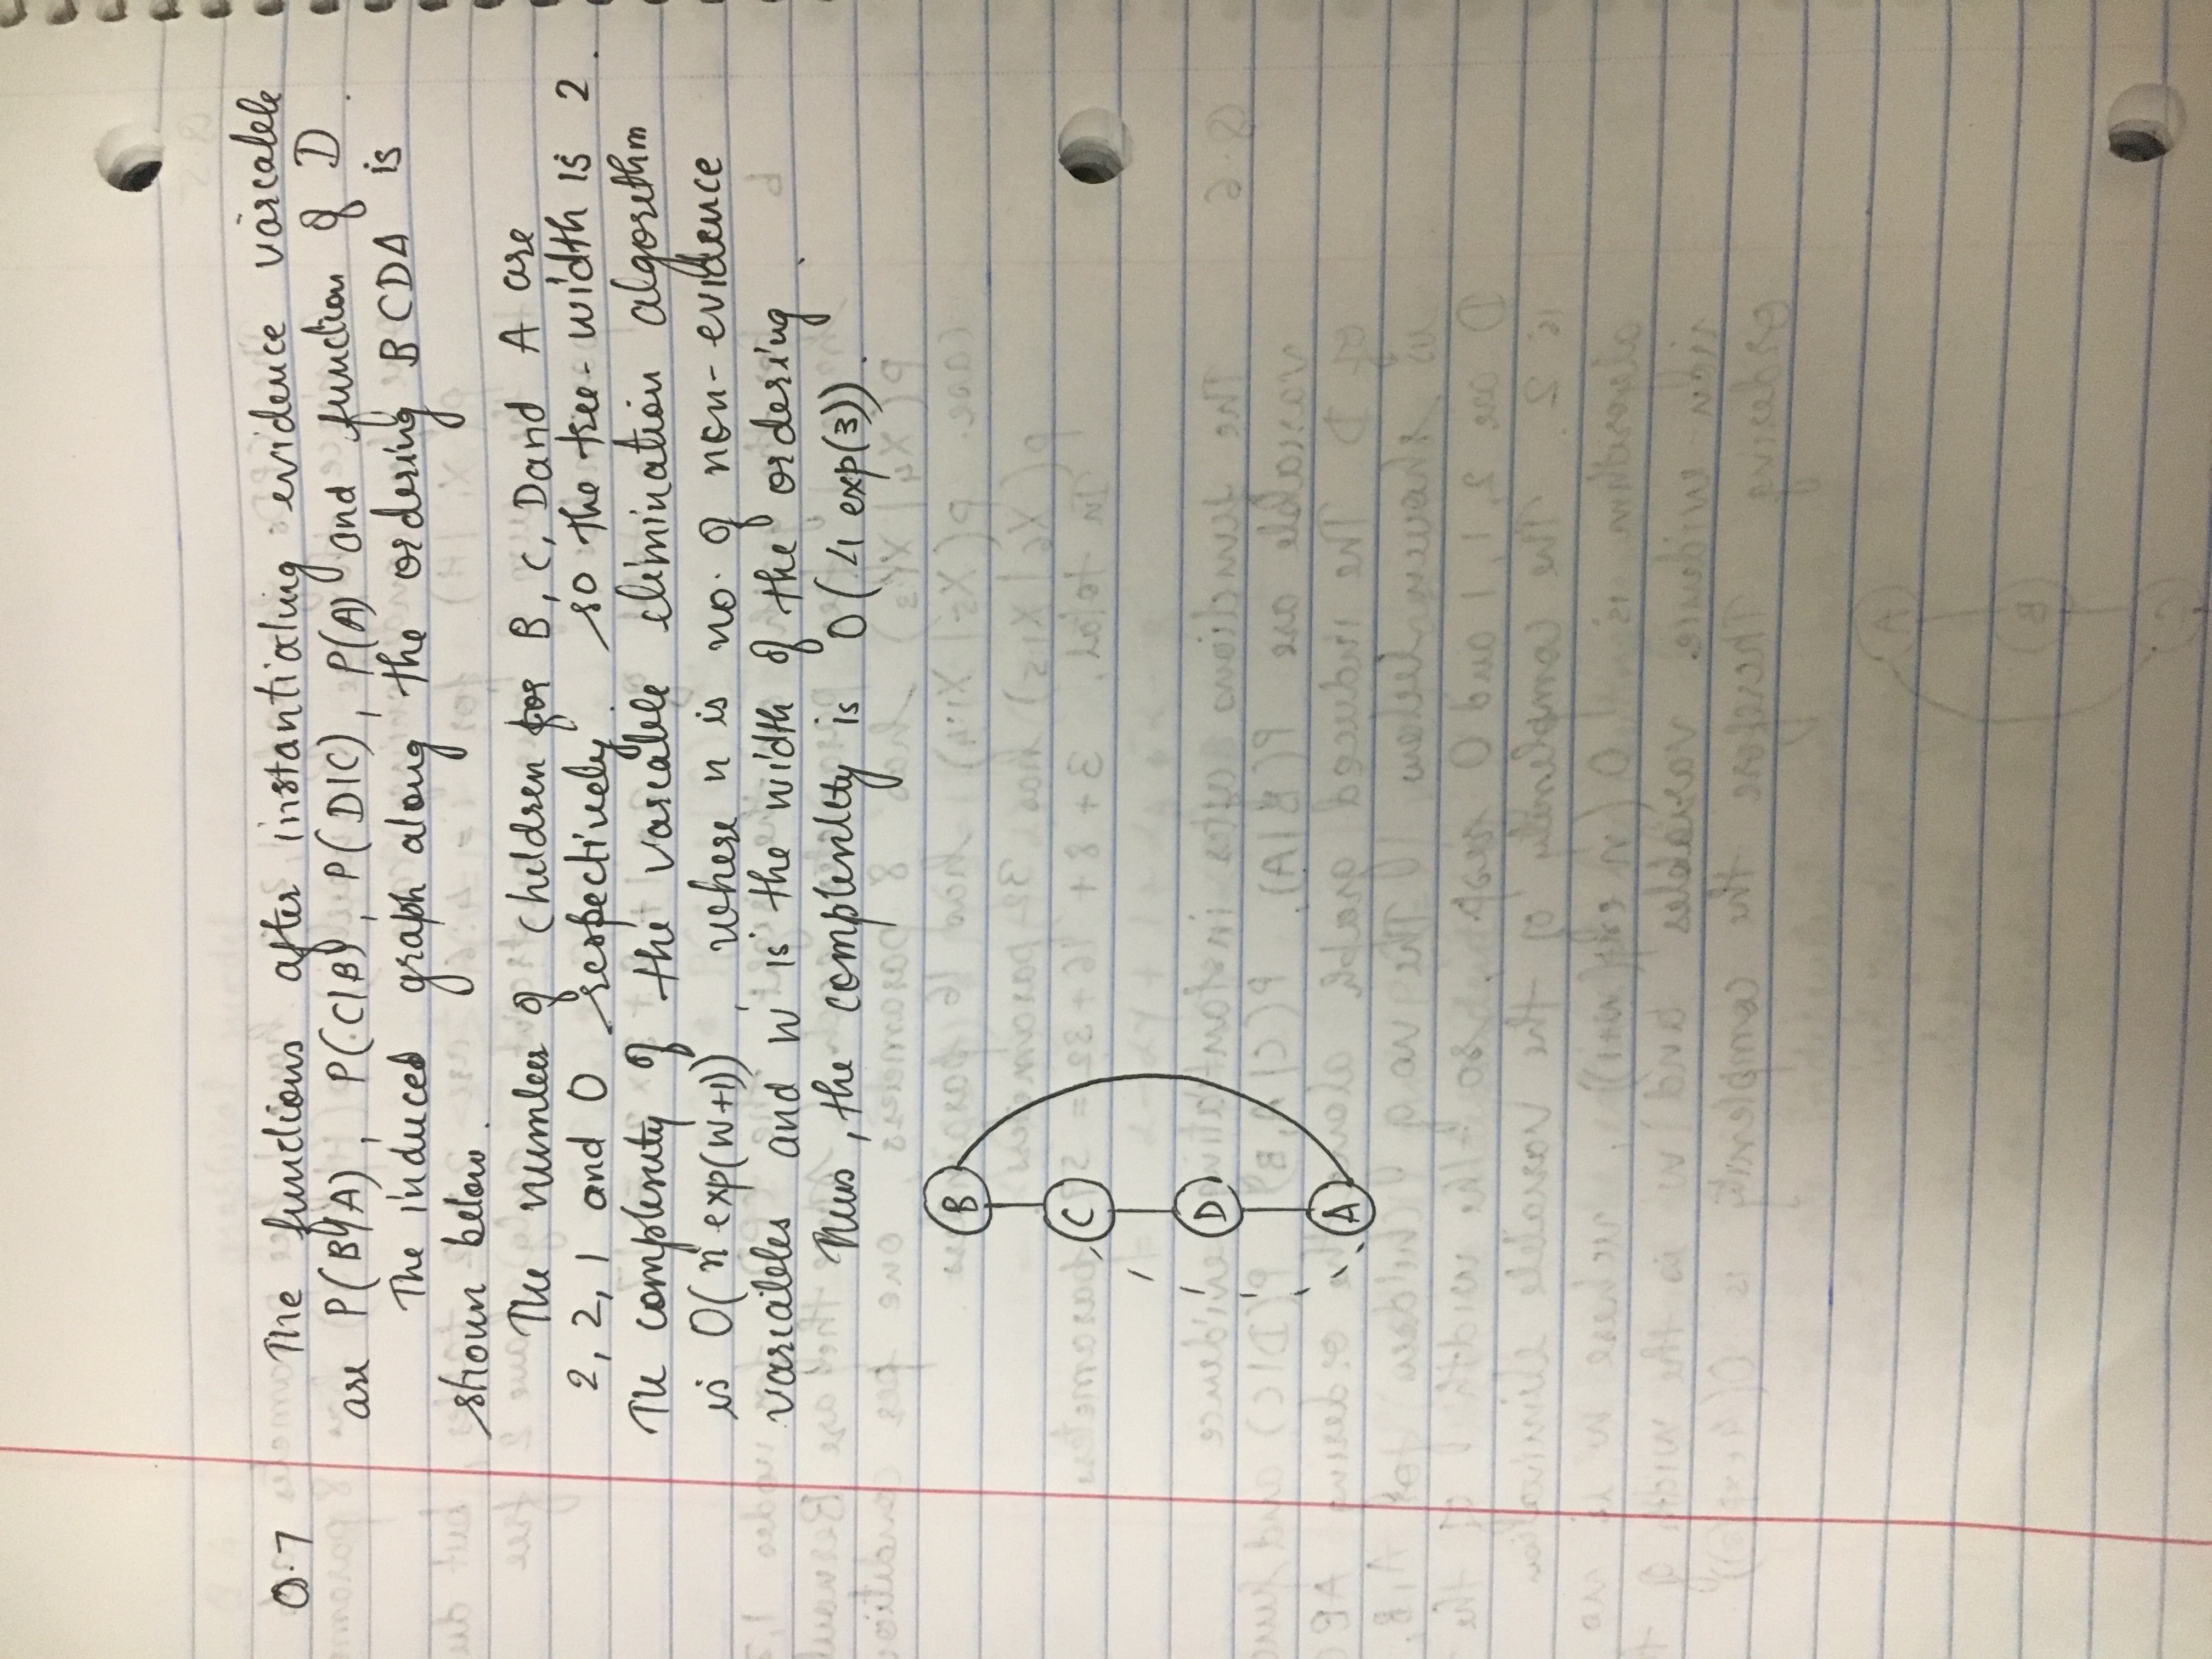 Q.7 The functions after instantiating evidence variable
are P(B|A), P(C|B), P(D|C), P(A) and function of D.
The induced graph along the ordering BCDA is
shown below.
The number of children for B, C, D and A are
2, 2, 1 and 0 respectively. so the tree-width is 2.
The complexity of the variable elimination algorithm
is O(n exp(w+1)), where n is no. of non-evidence
variables and w is the width of the ordering.
Thus, the complexity is O(4 exp(3)).
B
C
D
A